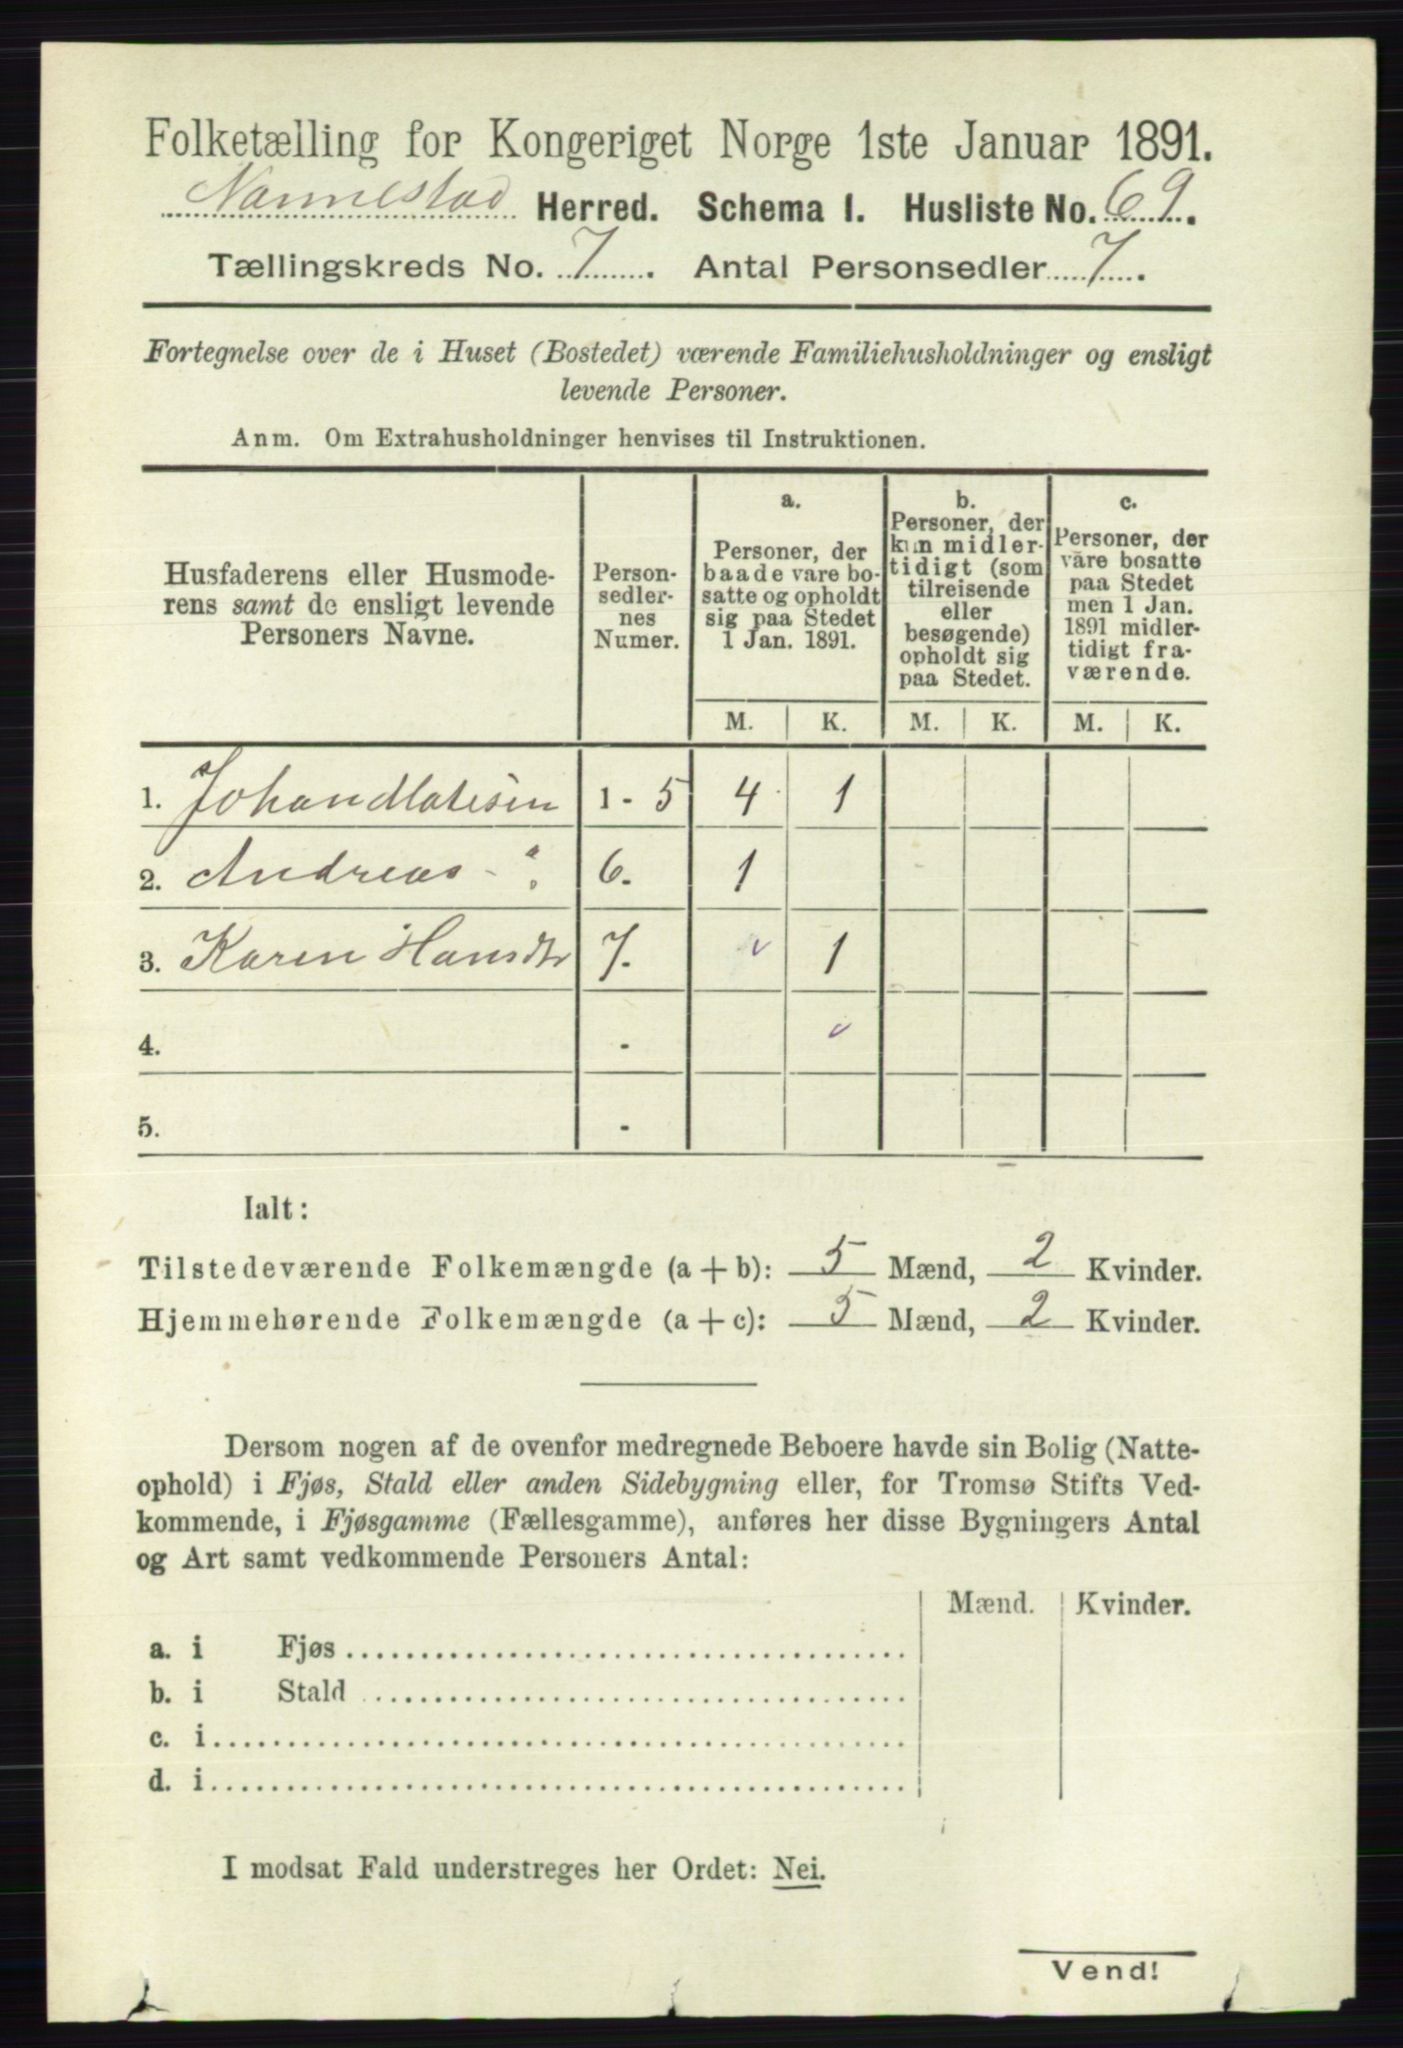 Folketælling for Kongeriget Norge 1ste Januar 1891.
Nannestad Herred. Schema I. Husliste No. 69.
Tællingskreds No. 7. Antal Personsedler 7.
Fortegnelse over de i Huset (Bostedet) værende Familiehusholdninger og ensligt
levende Personer.
Anm. Om Extrahusholdninger henvises til Instruktionen.
Husfaderens eller Husmode-
rens samt de ensligt levende
Personers Navne.
Person-
sedler-
nes
Numer.
a.
Personer, der
baade vare bo-
satte og opholdt
sig paa Stedet
1 Jan. 1891.
b.
Personer, der
kun midler-
tidigt (som
tilreisende
eller
besøgende)
opholdt sig
paa Stedet.
c.
Personer, der
vare bosatte
paa Stedet
men 1 Jan.
1891 midler-
tidigt fra-
værende.
M. K. M. K. M. K.
1. Johan Matisen 1 - 5 4 1
2. Andreas - " 6. 1
3. Karen Hansdtr 7. 1
4. -
5. -
Ialt:
Tilstedeværende Folkemængde (a + b): 5 Mænd, 2 Kvinder.
Hjemmehørende Folkemængde (a + c): 5 Mænd, 2 Kvinder.
Dersom nogen af de ovenfor medregnede Beboere havde sin Bolig (Natte-
ophold) i Fjøs, Stald eller anden Sidebygning eller, for Tromsø Stifts Ved-
kommende, i Fjøsgamme (Fællesgamme), anføres her disse Bygningers Antal
og Art samt vedkommende Personers Antal:
Mænd. Kvinder.
a. i Fjøs
b. i Stald
c. i
d. i
I modsat Fald understreges her Ordet: Nei.
Vend!